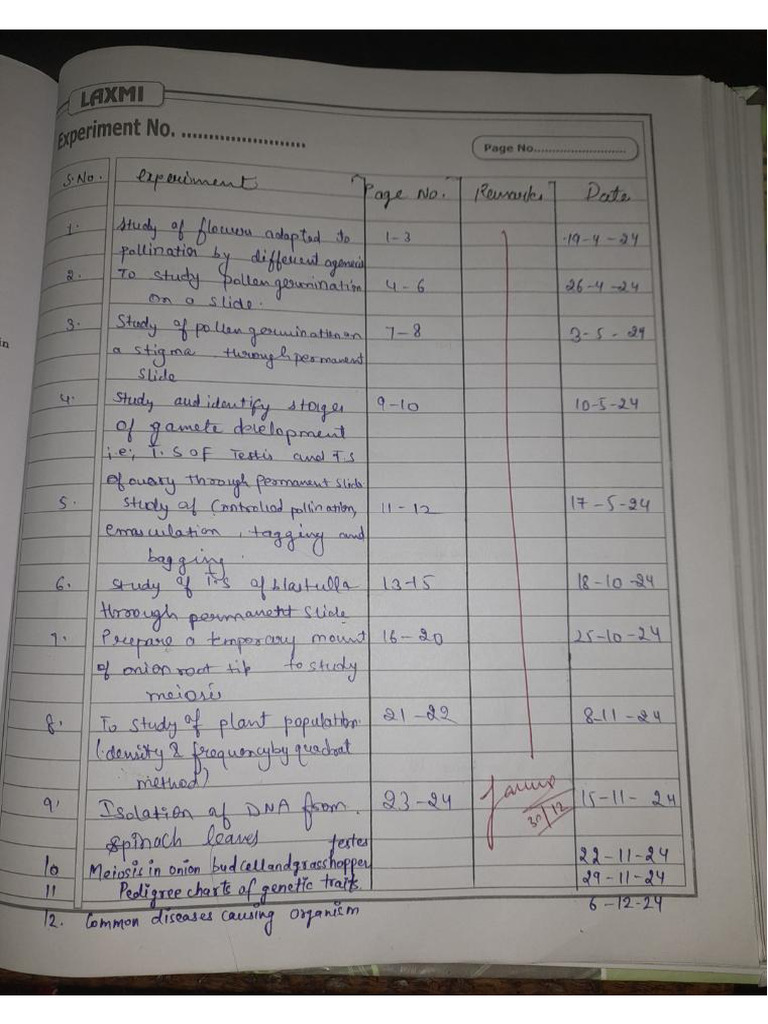 LAXMI
Experiment No. ........................
Page No............................
in
S.No. experiment Page No. Remarks Date
1. Study of flowers adapted to 1-3 19-4-24
pollination by different agencies
2. To study pollen germination 4-6 26-4-24
on a slide.
3. Study of pollen germination on 7-8 3-5-24
a stigma through permanent
slide
4. Study and identify stages 9-10 10-5-24
of gamete development
i.e; T.S OF Testis and T.S
of ovary through permanent slide
5. Study of Controlled pollination, 11-12 17-5-24
emasculation, tagging and
bagging.
6. Study of T.S of blastulla 13-15 18-10-24
through permanent slide
7. Prepare a temporary mount 16-20 25-10-24
of onion root tip to study
meiosis
8. To study of plant population 21-22 8-11-24
(density & frequency by quadrat
method)
9. Isolation of DNA from 23-24 15-11-24
spinach leaves
30/12
testes
10 Meiosis in onion bud cell and grasshopper 22-11-24
11 Pedigree charts of genetic traits. 29-11-24
12. Common diseases causing organism 6-12-24